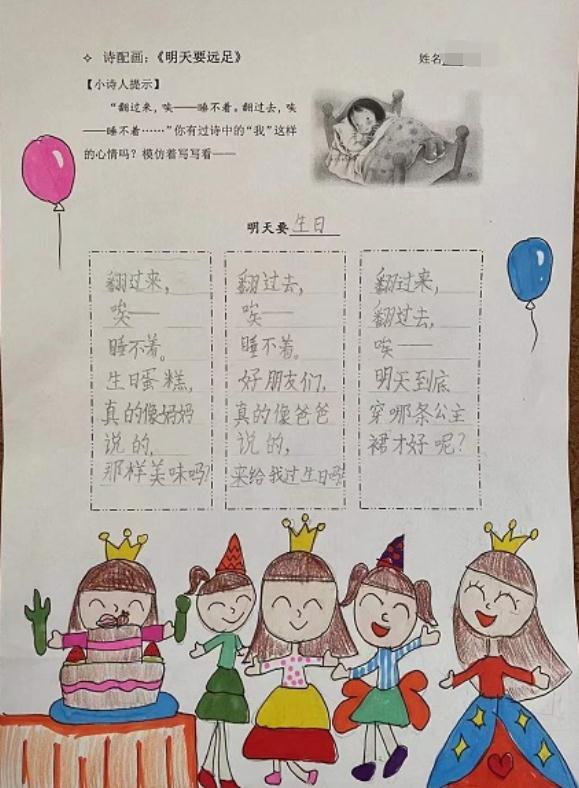 ✧ 诗配画：《明天要远足》
姓名
【小诗人提示】
“翻过来，唉——睡不着。翻过去，唉
——睡不着……”你有过诗中的“我”这样
的心情吗？模仿着写写看——
明天要生日
翻过来，
唉——
睡不着。
生日蛋糕，
真的像妈妈
说的，
那样美味吗？
翻过去，
唉——
睡不着。
好朋友们，
真的像爸爸
说的，
来给我过生日吗
翻过来，
翻过去，
唉——
明天到底
穿哪条公主
裙才好呢？